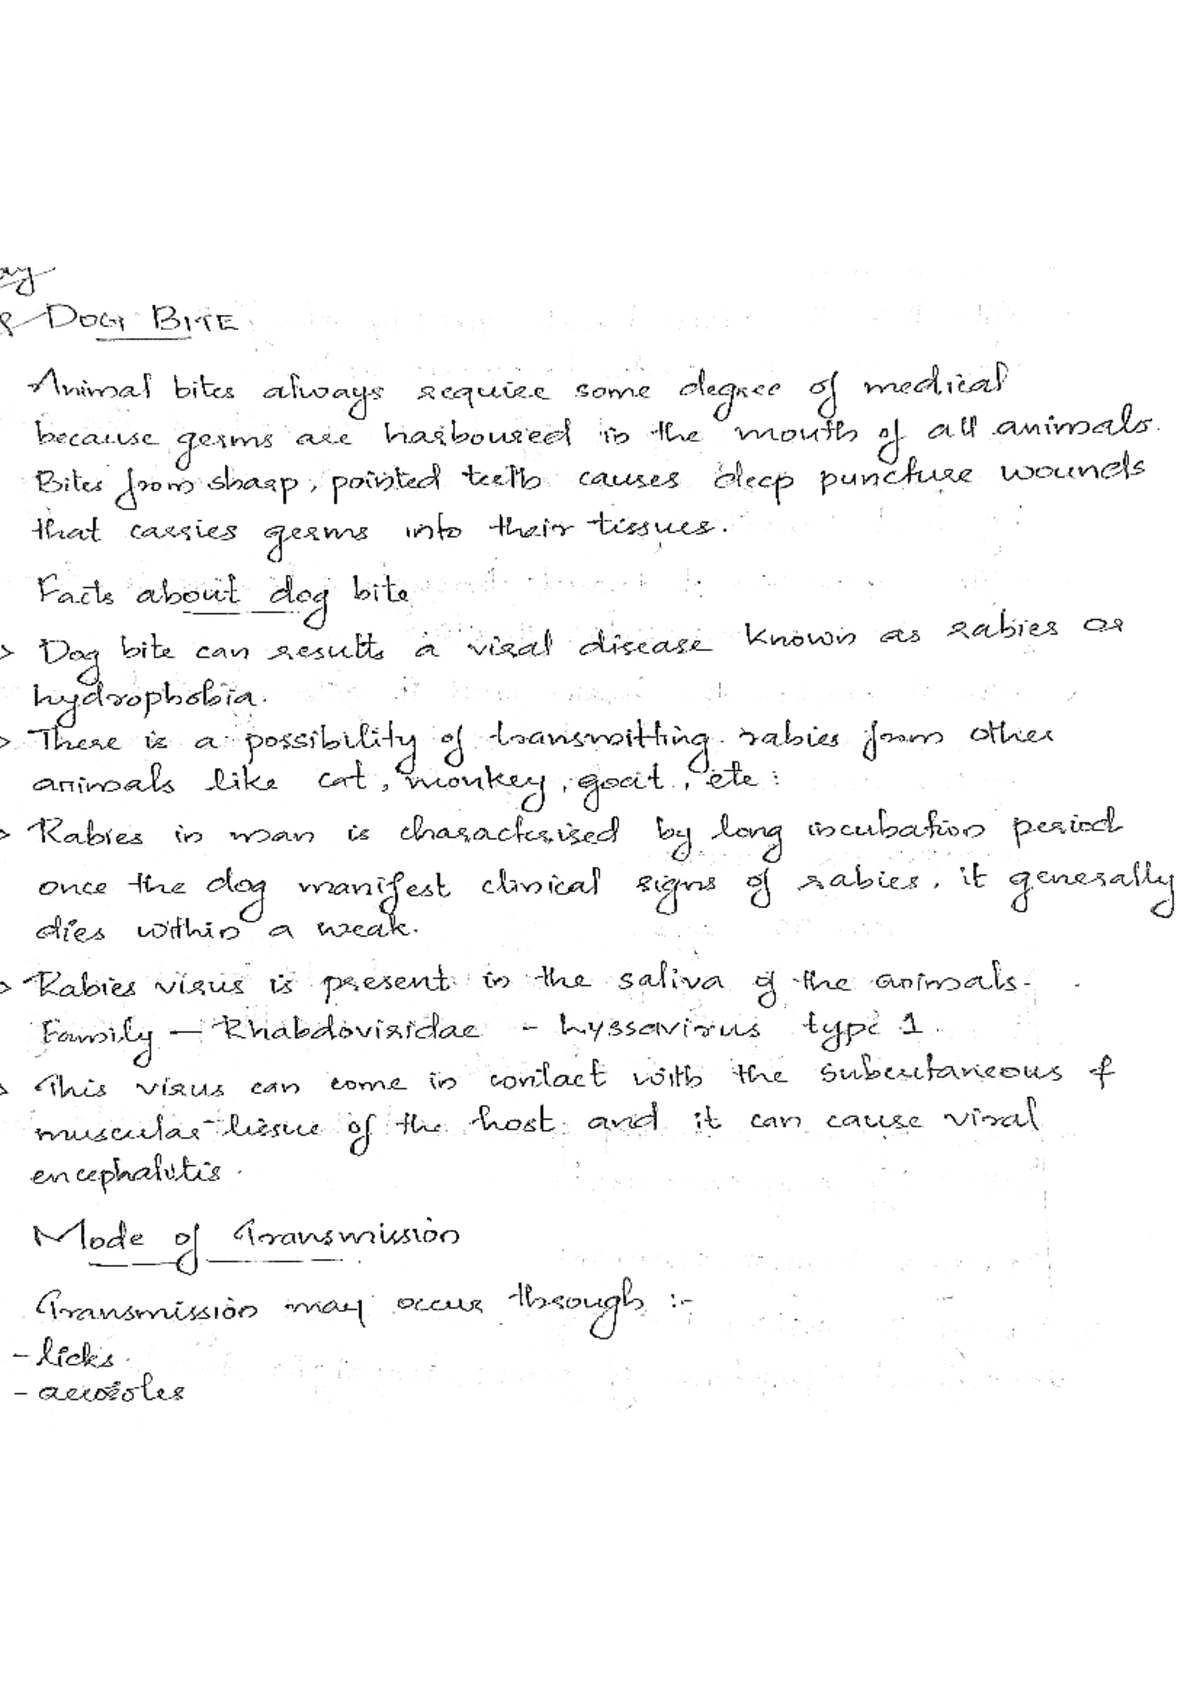 DOG BITE
Animal bites always require some degree of medical
because germs are harboured in the mouth of all animals.
Bites from sharp, pointed teeth causes deep puncture wounds
that carries germs into their tissues.
Facts about dog bite
> Dog bite can results a viral disease known as rabies or
hydrophobia.
> There is a possibility of transmitting rabies from other
animals like cat, monkey, goat, etc:
> Rabies in man is characterised by long incubation period
once the dog manifest clinical signs of rabies, it generally
dies within a weak.
> Rabies virus is present in the saliva of the animals.
Family — Rhabdoviridae - Lyssavirus type 1.
> This virus can come in contact with the subcutaneous &
muscular tissue of the host and it can cause viral
encephalitis.
Mode of Transmission
Transmission may occur through :-
- licks.
- aerosoles